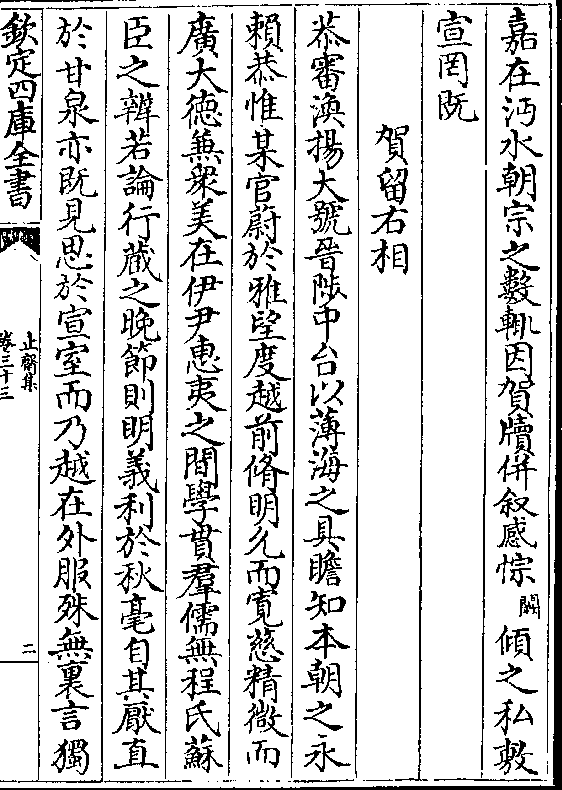 嘉在沔水朝宗之數輒因賀牘併叙感悰闕傾之私敷
宣罔既
賀留右相
恭審渙揚大號晉陟中台以薄海之具瞻知本朝之永
賴恭惟某官蔚於雅望度越前脩明允而寛慈精微而
廣大德兼衆美在伊尹惠夷之間學貫羣儒無程氏蘇
臣之辨若論行蔵之晚節則明義利於秋毫自其厭直
於甘泉亦既見思於宣室而乃越在外服殊無裏言獨
欽定四庫全書
止齋集
卷三十三
二